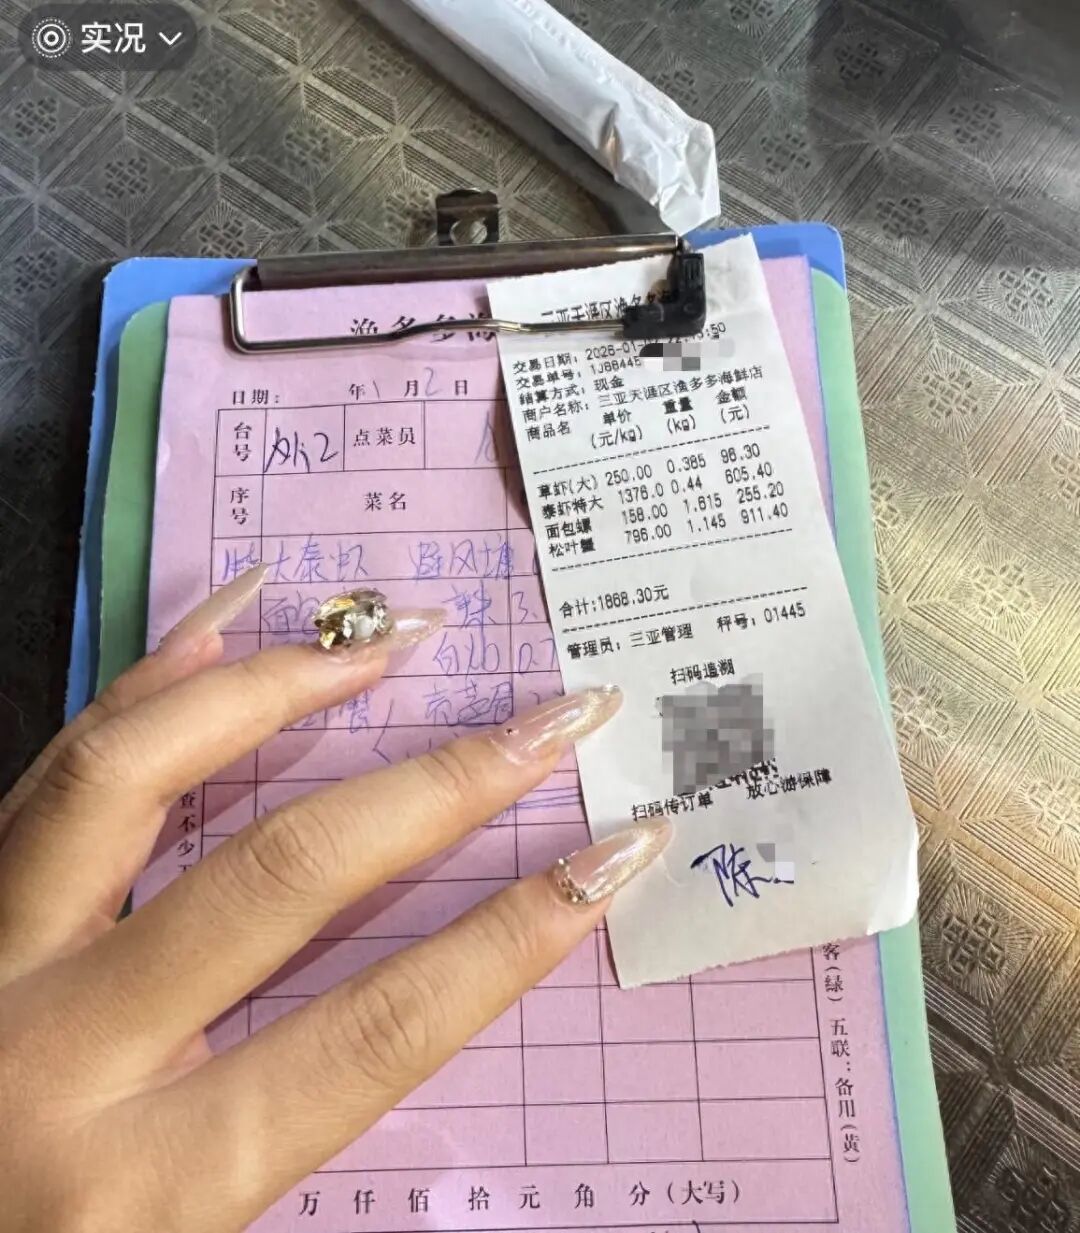 实况
渔多多海
日期： 年1月2日
台号 外2 点菜员
序号 菜名
特大泰虾 避风塘
面包
辣 3.
白灼 0.7
蟹
查不少
万 仟 佰 拾 元 角 分（大写）
客（绿） 五联：备用（黄）
三亚天涯区渔多多海
交易日期：2026-01-
交易单号：1J88445
结算方式：现金
商户名称：三亚天涯区渔多多海鲜店
商品名 单价 重量 金额
(元/kg) (kg) (元)
草虾(大) 250.00 0.385 96.30
泰虾特大 1376.0 0.44 605.40
面包螺 158.00 1.615 255.20
松叶蟹 796.00 1.145 911.40
合计:1868.30元
管理员：三亚管理 秤号：01445
扫码追溯
扫码传订单 放心游保障
陈